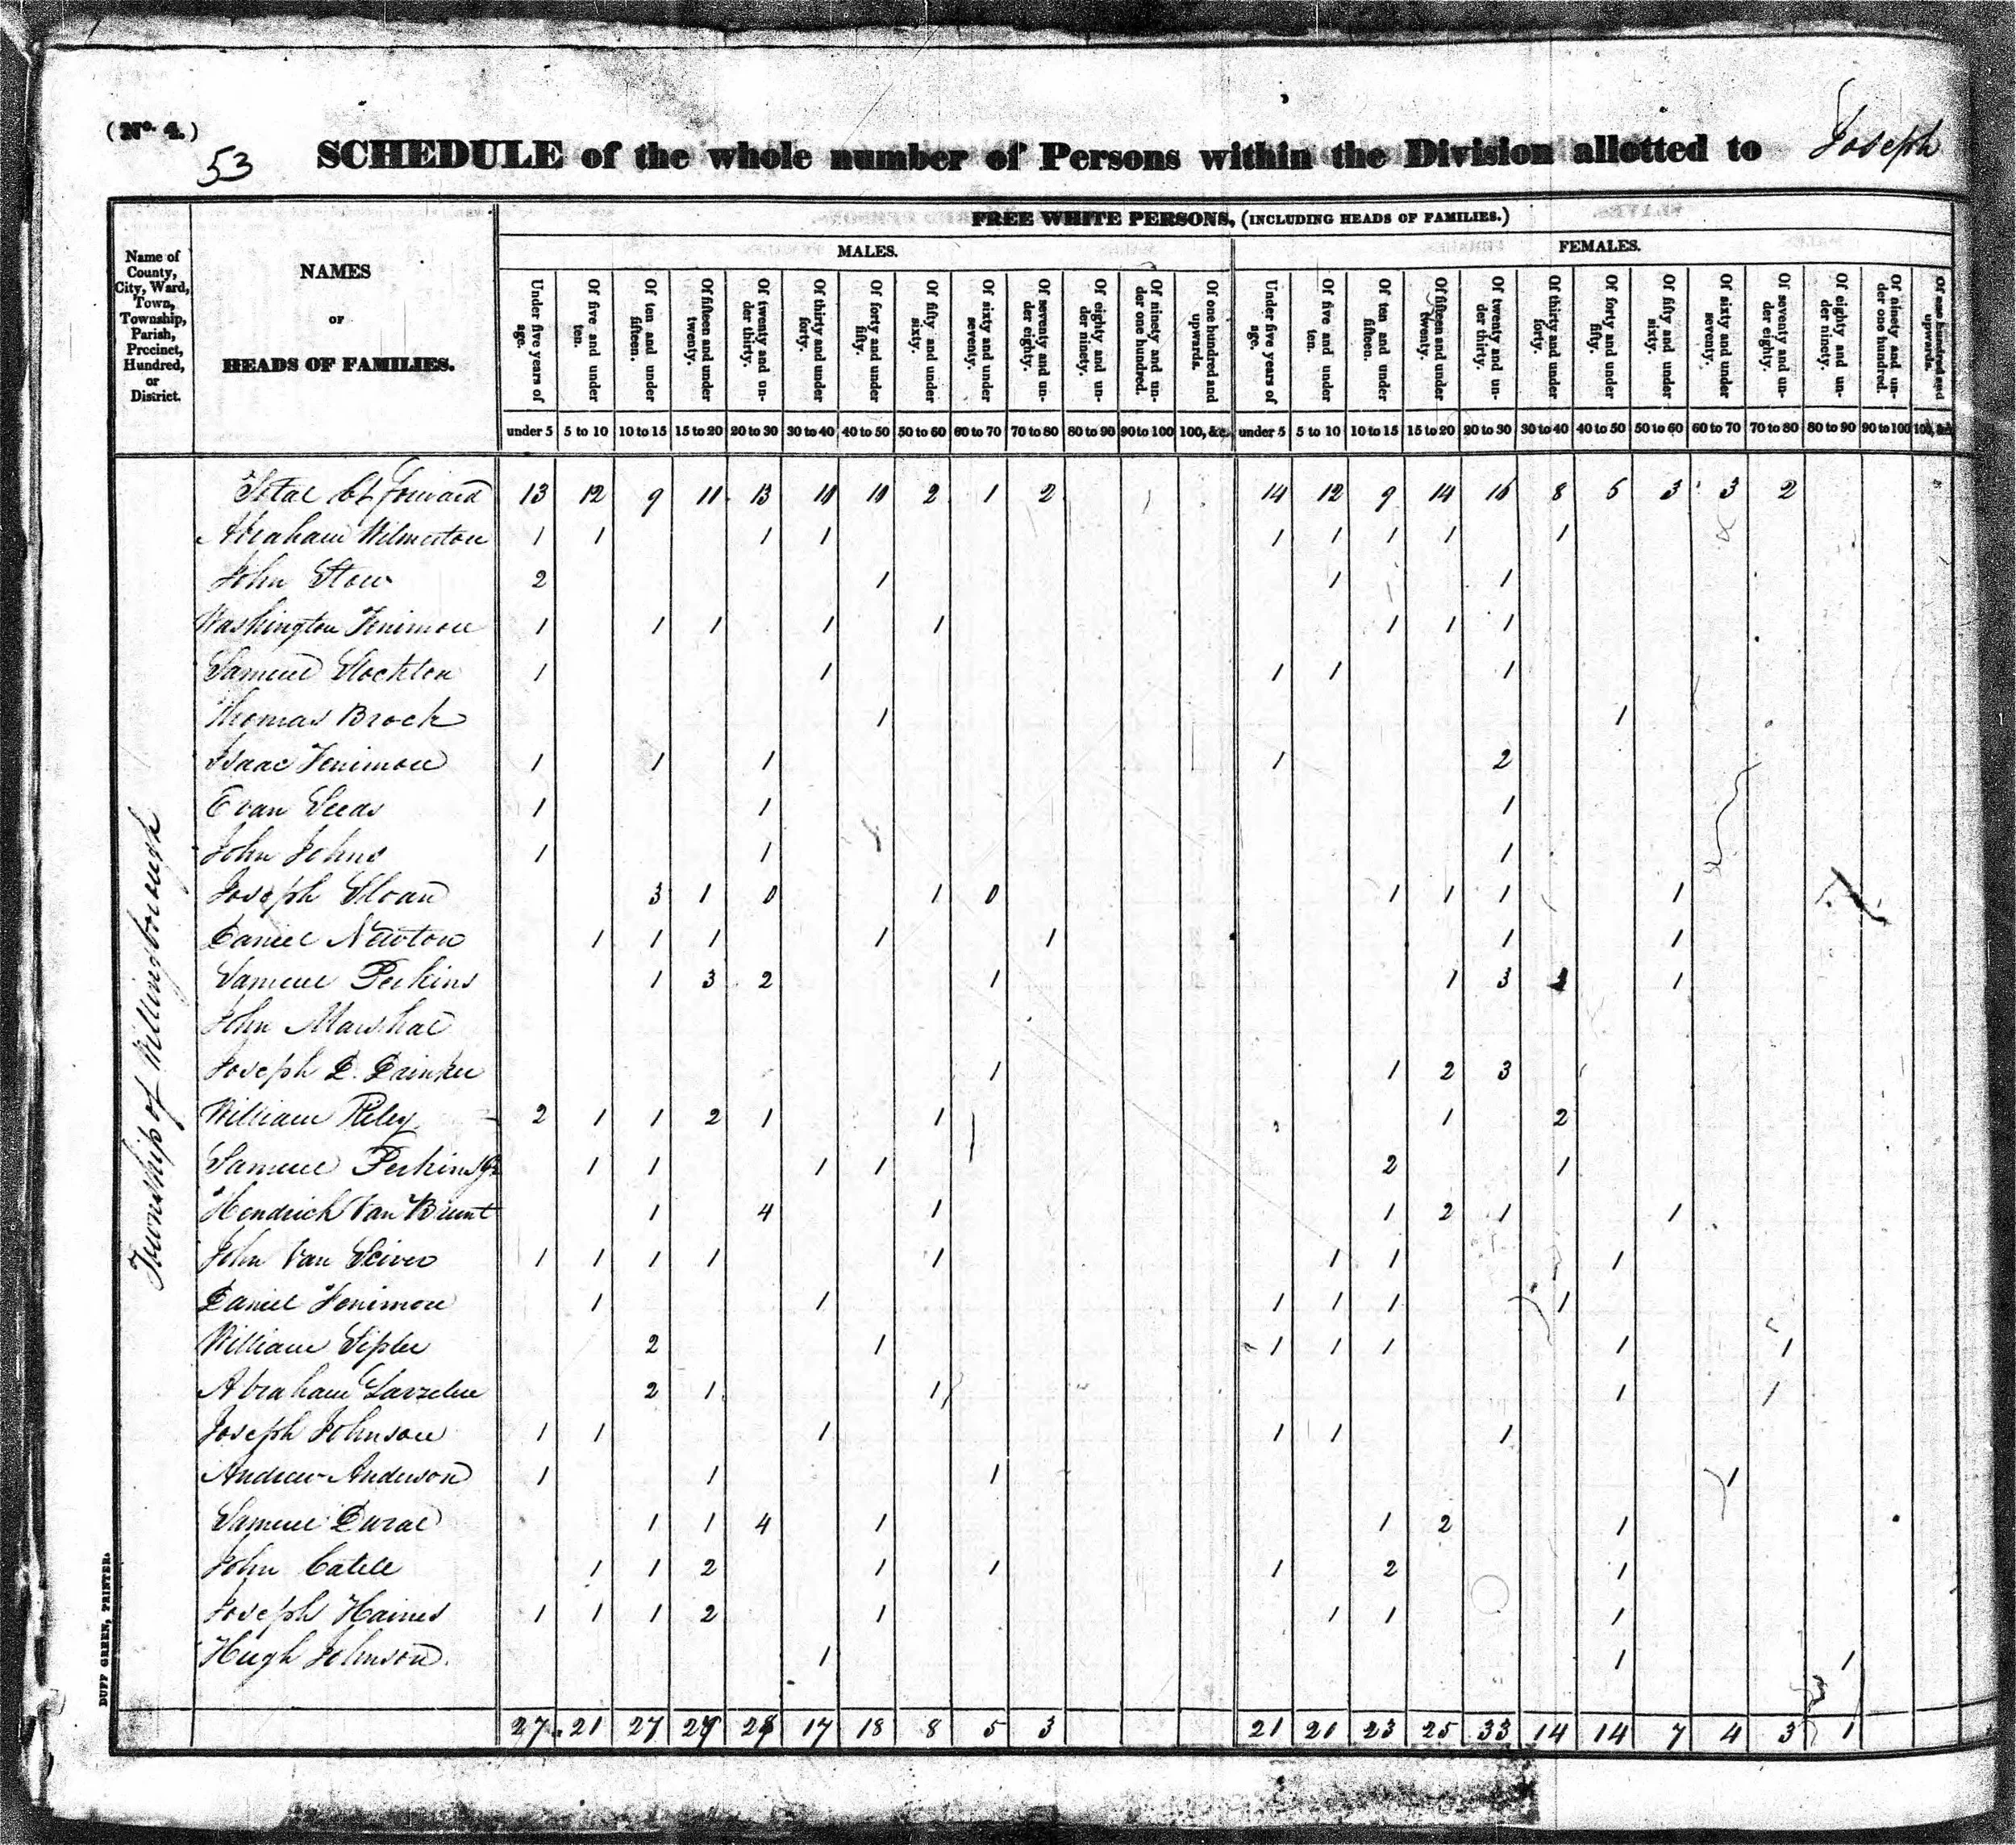 (No. 4.)
53
SCHEDULE of the whole number of Persons within the Division allotted to Joseph
FREE WHITE PERSONS, (INCLUDING HEADS OF FAMILIES.)
MALES. FEMALES.
Name of County, City, Ward, Town, Township, Parish, Precinct, Hundred, or District.
NAMES
OF
HEADS OF FAMILIES.
Under five years of age. Of five and under ten. Of ten and under fifteen. Of fifteen and under twenty. Of twenty and under thirty. Of thirty and under forty. Of forty and under fifty. Of fifty and under sixty. Of sixty and under seventy. Of seventy and under eighty. Of eighty and under ninety. Of ninety and under one hundred. Of one hundred and upwards. Under five years of age. Of five and under ten. Of ten and under fifteen. Of fifteen and under twenty. Of twenty and under thirty. Of thirty and under forty. Of forty and under fifty. Of fifty and under sixty. Of sixty and under seventy. Of seventy and under eighty. Of eighty and under ninety. Of ninety and under one hundred. Of one hundred and upwards.
under 5 5 to 10 10 to 15 15 to 20 20 to 30 30 to 40 40 to 50 50 to 60 60 to 70 70 to 80 80 to 90 90 to 100 100, &c. under 5 5 to 10 10 to 15 15 to 20 20 to 30 30 to 40 40 to 50 50 to 60 60 to 70 70 to 80 80 to 90 90 to 100 100, &c
Township of Willingborough
Total Bt Forward 13 12 9 11 13 10 10 2 1 2 14 12 9 14 16 8 5 3 3 2
Abraham Wilmerton 1 1 1 1 1 1 1 1 1
John Stow 2 1 1 1
Washington Fenimore 1 1 1 1 1 1 1 1
Samuel Stockton 1 1 1 1 1
Thomas Brock 1 1
Isaac Fenimore 1 1 1 1 2
Evan Seeds 1 1 1
John Johns 1 1 1
Joseph Sloan 3 1 0 1 0 1 1 1 1
Daniel Newton 1 1 1 1 1 1 1
Samuel Perkins 1 3 2 1 1 3 1 1
John Marshal
Joseph D. Drinker 1 1 2 3
William Riley 2 1 1 2 1 1 1 2
Samuel Perkins Jr 1 1 1 1 2 1
Hendrick Van Brunt 1 4 1 1 2 1 1
John Van Sciver 1 1 1 1 1 1 1 1
Daniel Fenimore 1 1 1 1 1 1
William Sipler 2 1 1 1 1 1 1
Abraham Larzelere 2 1 1 1 1
Joseph Johnson 1 1 1 1 1 1
Andrew Anderson 1 1 1 1
Samuel 1 1 4 1 1 2 1
John Catell 1 1 2 1 1 1 2 1
Joseph Haines 1 1 1 2 1 1 1 1
Hugh Johnson 1 1 1
27 21 27 17 18 8 5 3 21 21 23 25 33 14 14 7 4 3 1
DUFF GREEN, PRINTER.